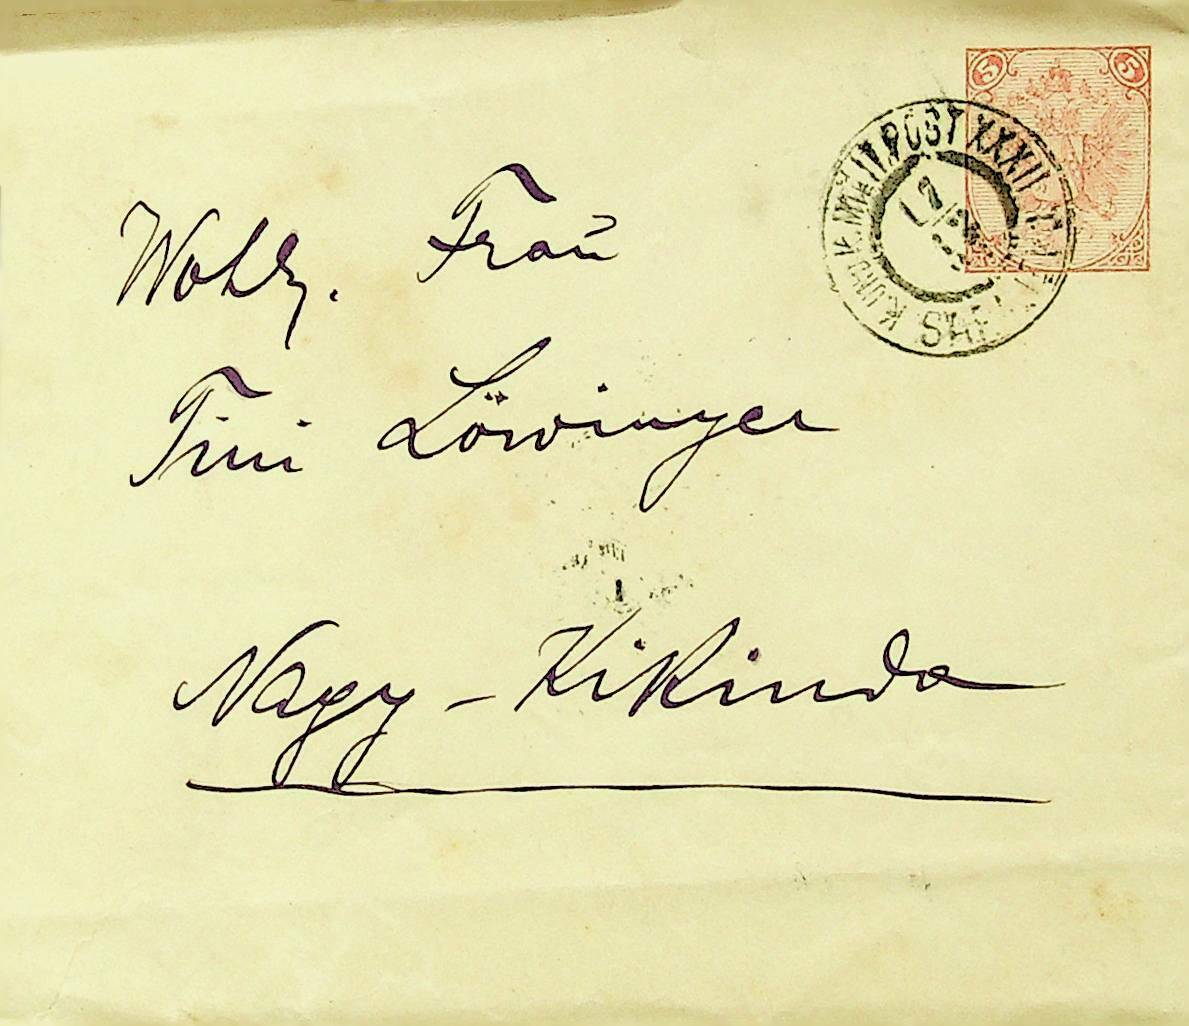 5 5
K.UND K. MILIT.POST XXXII
Wohlg. Frau
Tini Löwinger
Nagy-Kikinda